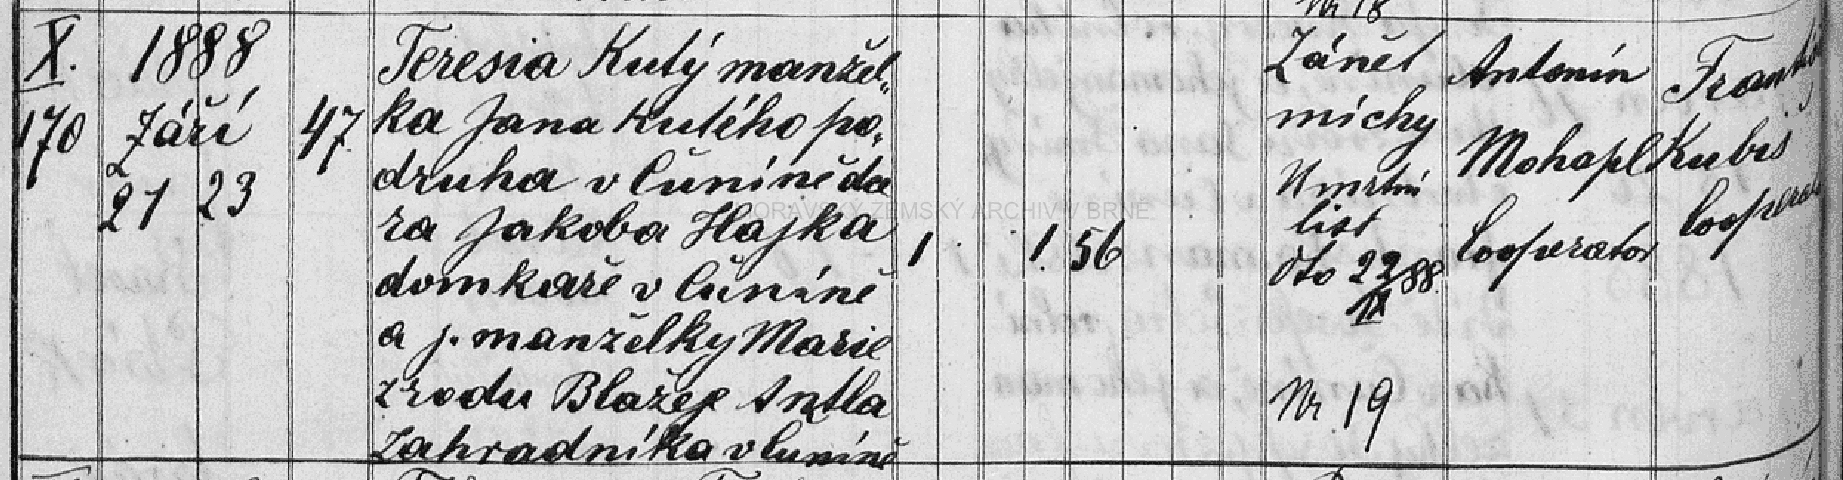 Nr 18
X. 1888
170
Září
21 23
47
Teresia Kutý manžel„
ka Jana Kutého po„
druha v Čuníně dce
ra Jakoba Hajka
domkaře v Čuníně
a j. manželky Marie
z rodu Blažeje Antla
zahradníka v Čuníně
1
1 56
Zánět
míchy
Umrtní
list
dto 22/IX 88
Nr 19
Antonín
Mohapl
Cooperator
Kubis
MORAVSKÝ ZEMSKÝ ARCHIV V BRNĚ